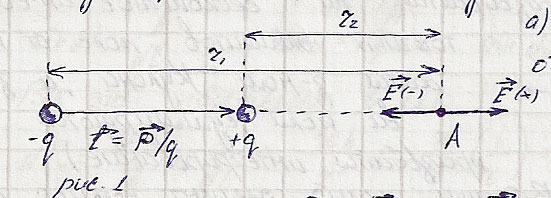 а)
r₂
r₁
E⃗(-) E⃗(x)
-q l⃗ = P⃗/q +q A
рис. 1